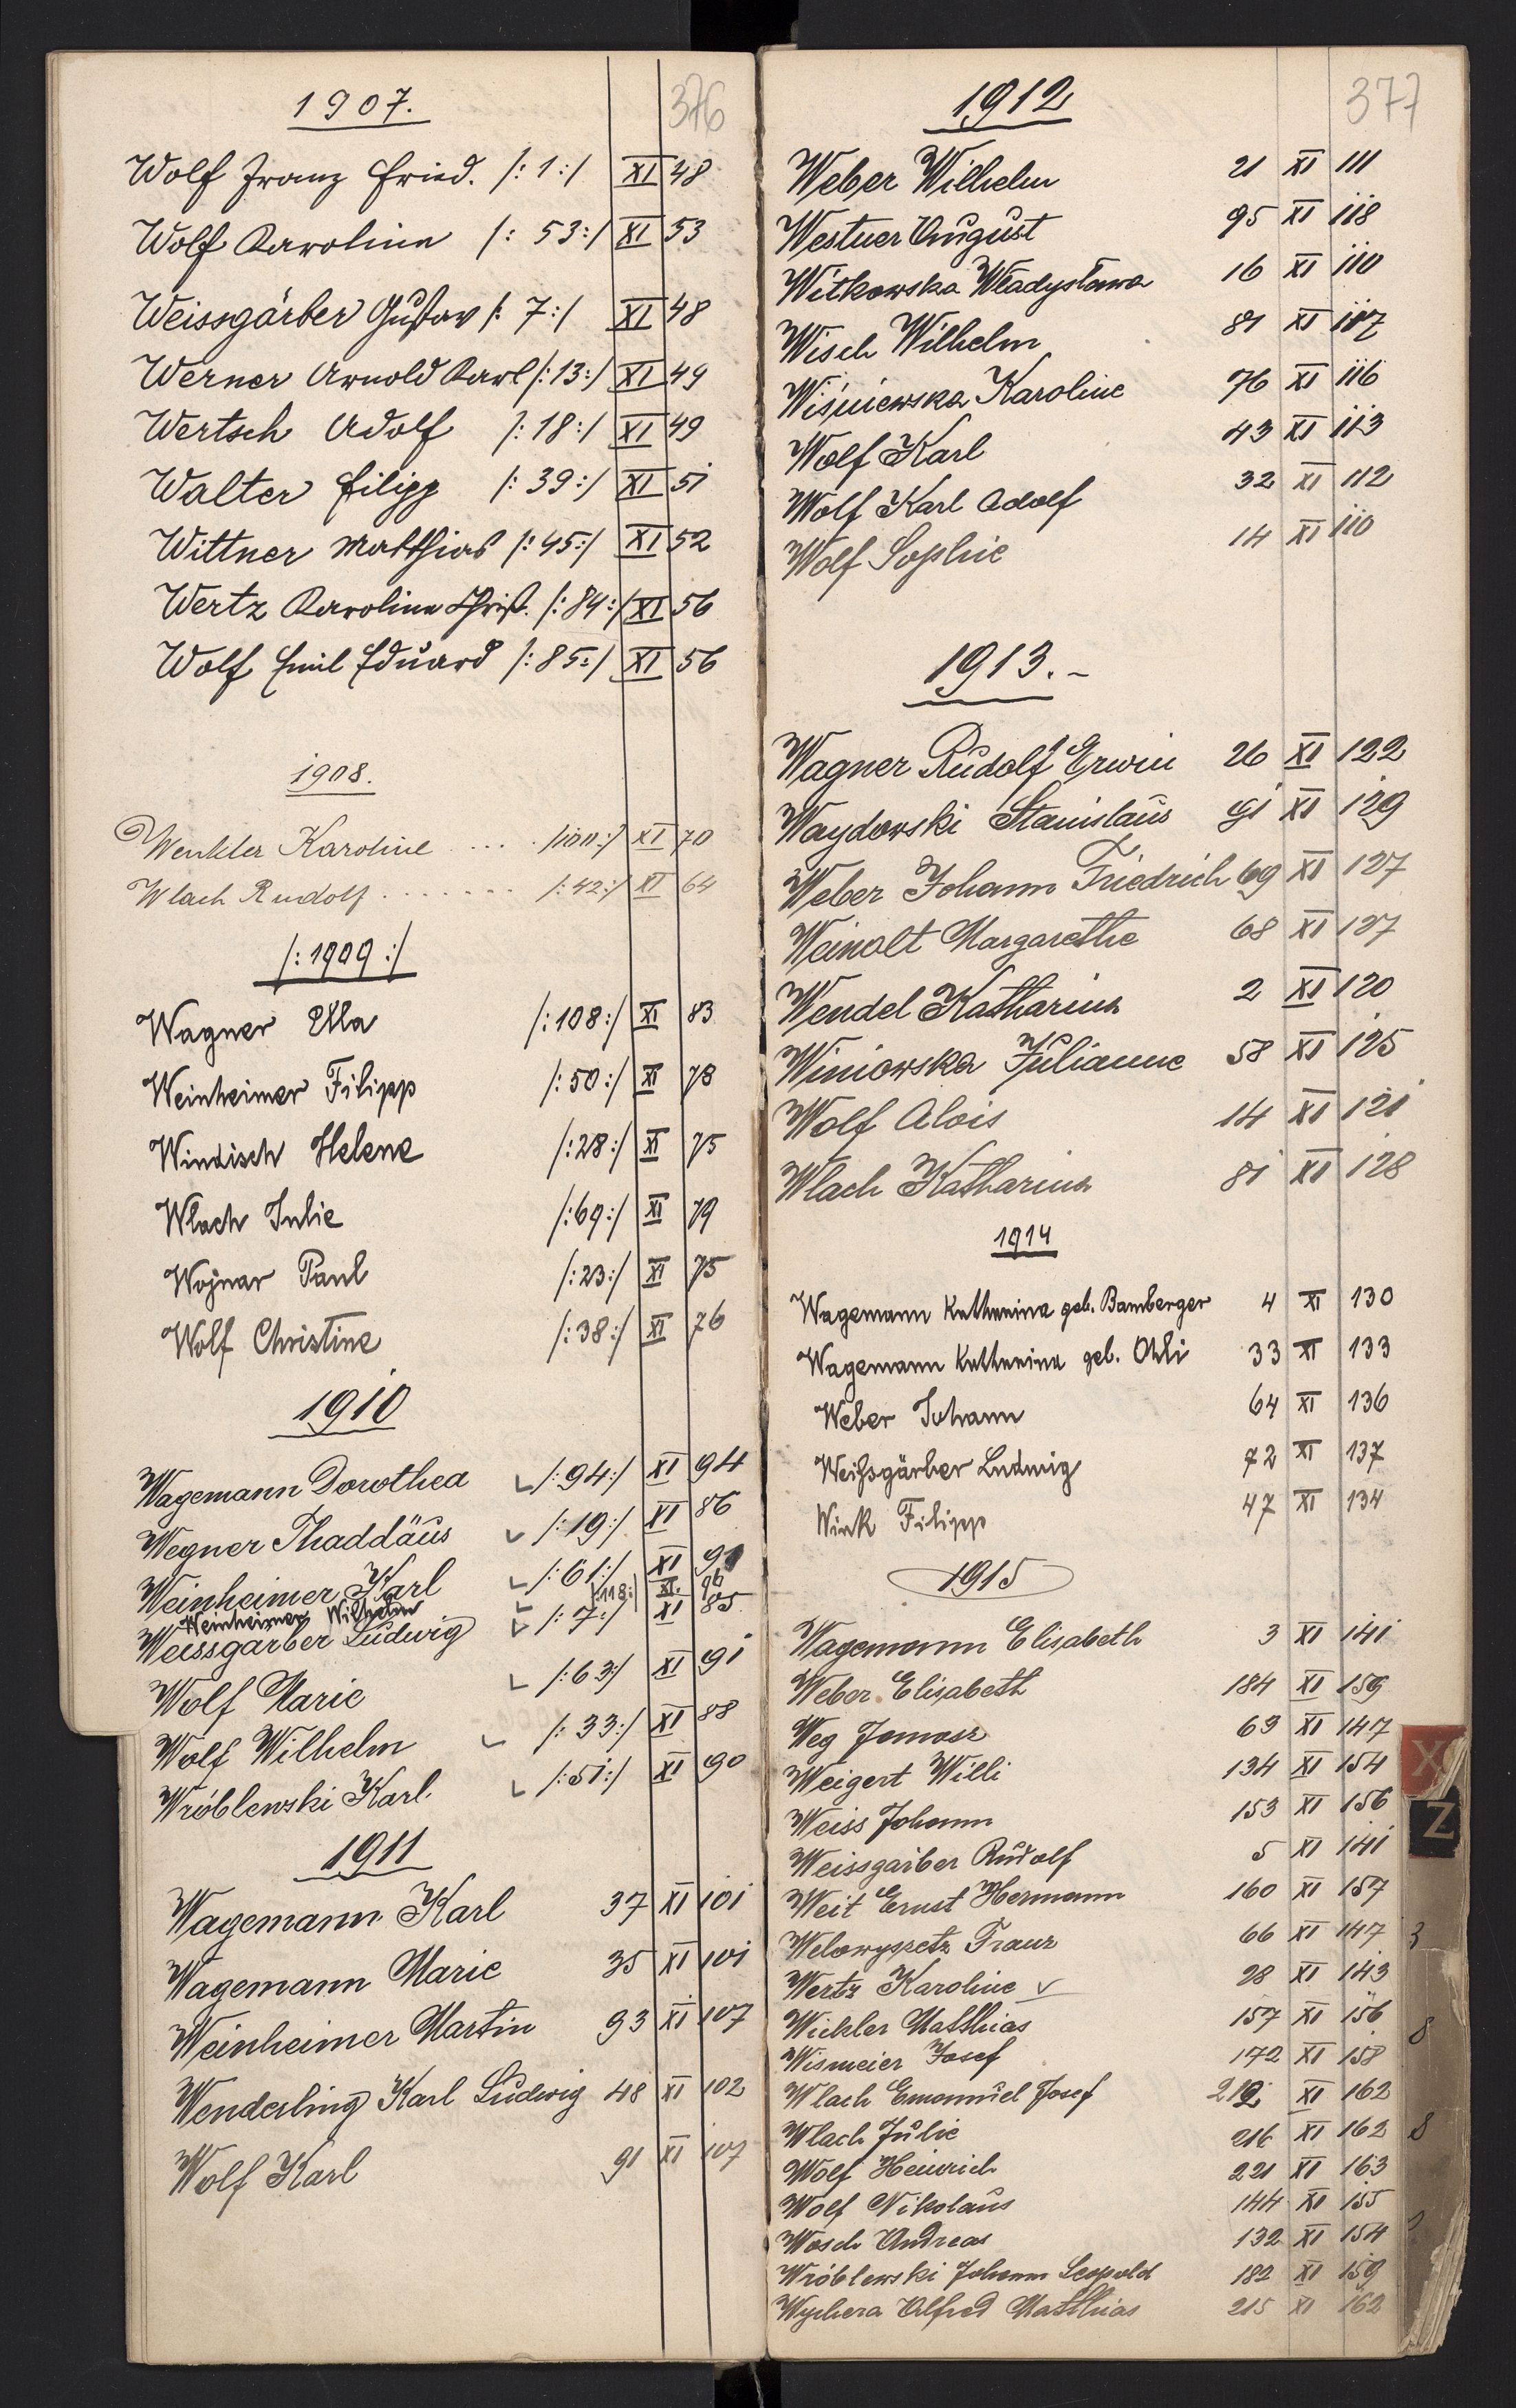 376
1907.
Wolf Franz Fried. /: 1 :/ XI 48
Wolf Karolina /: 53 :/ XI 53
Weissgärber Gustav /: 7 :/ XI 48
Werner Arnold Karl /: 13 :/ XI 49
Wertsch Adolf /: 18 :/ XI 49
Walter Filipp /: 39 :/ XI 51
Wittner Matthias /: 45 :/ XI 52
Wertz Karolina Christ. /: 84 :/ XI 56
Wolf Emil Eduard /: 85 :/ XI 56
1908.
Wenkler Karoline .... /: 100 :/ XI 70
Wlach Rudolf ........ /: 42 :/ XI 64
/: 1909 :/
Wagner Ella /: 108 :/ XI 83
Weinheimer Filipp /: 50 :/ XI 78
Windisch Helene /: 28 :/ XI 75
Wlach Julie /: 69 :/ XI 79
Wojnar Paul /: 23 :/ XI 75
Wolf Christine /: 38 :/ XI 76
1910
Wagemann Dorothea /: 94 :/ XI 94
Wegner Thaddäus /: 19 :/ XI 86
Weinheimer Karl /: 61 :/ XI 91
Weinheimer Wilhelm /: 118 :/ XI. 96
Weissgarber Ludwig /: 7 :/ XI 85
Wolf Marie /: 63 :/ XI 91
Wolf Wilhelm /: 33 :/ XI 88
Wróblewski Karl /: 51 :/ XI 90
1911
Wagemann Karl 37 XI 101
Wagemann Marie 35 XI 101
Weinheimer Martin 93 XI 107
Wenderling Karl Ludwig 48 XI 102
Wolf Karl 91 XI 107
377
1912
Weber Wilhelm 21 XI 111
Westner August 95 XI 118
Witkowska Władysława 16 XI 110
Wisch Wilhelm 81 XI 117
Wiśniewska Karoline 76 XI 116
Wolf Karl 43 XI 113
Wolf Karl Adolf 32 XI 112
Wolf Sophie 14 XI 110
1913.-
Wagner Rudolf Erwin 26 XI 122
Waydowski Stanislaus 91 XI 129
Weber Johann Friedrich 69 XI 127
Weinolt Margarethe 68 XI 127
Wendel Katharina 2 XI 120
Winiowska Julianne 58 XI 125
Wolf Alois 14 XI 121
Wlach Katharina 81 XI 128
1914
Wagemann Katharina geb. Bamberger 4 XI 130
Wagemann Katharina geb. Ohli 33 XI 133
Weber Johann 64 XI 136
Weißgärber Ludwig 72 XI 137
Wink Filipp 47 XI 134
1915
Wagemann Elisabeth 3 XI 141
Weber Elisabeth 184 XI 159
Weg Tomasz 63 XI 147
Weigert Willi 134 XI 154
Weiss Johann 153 XI 156
Weissgarber Rudolf 5 XI 141
Weit Ernst Hermann 160 XI 157
Franz 66 XI 147
Wertz Karoline 28 XI 143
Wichler Matthias 157 XI 156
Wismeier Josef 172 XI 158
Wlach Emanuel Josef 212 XI 162
Wlach Julie 216 XI 162
Wolf Heinrich 221 XI 163
Wolf Nikolaus 144 XI 155
Wosch Andreas 132 XI 154
Wróblewski Johann Leopold 182 XI 159
Wychera Alfred Matthias 215 XI 162
X
Z